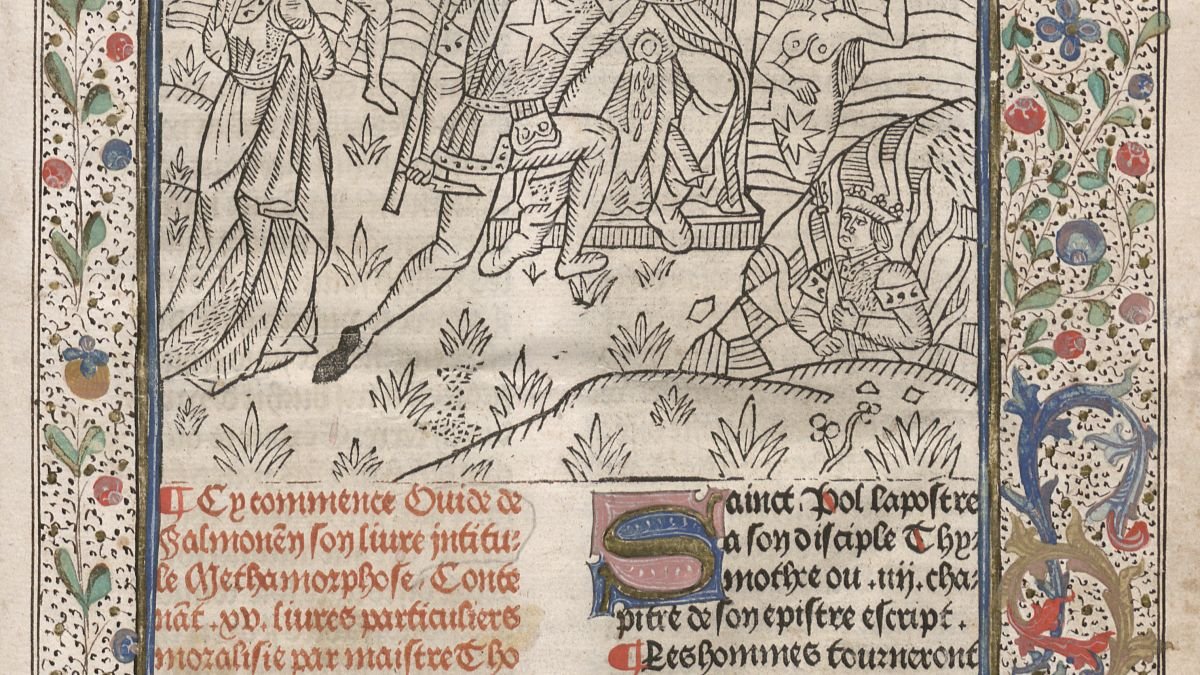 ¶ Cy commence Ouide de
Salmonēn son liure intitu-
le Methamorphose. Conte
nāt .xv. liures particuliers
moralisie par maistre Tho
Sainct Pol lapostre
a son disciple Thy-
mothee ou .iiij. cha-
pitre de son epistre escript.
¶ Les hommes tourneront